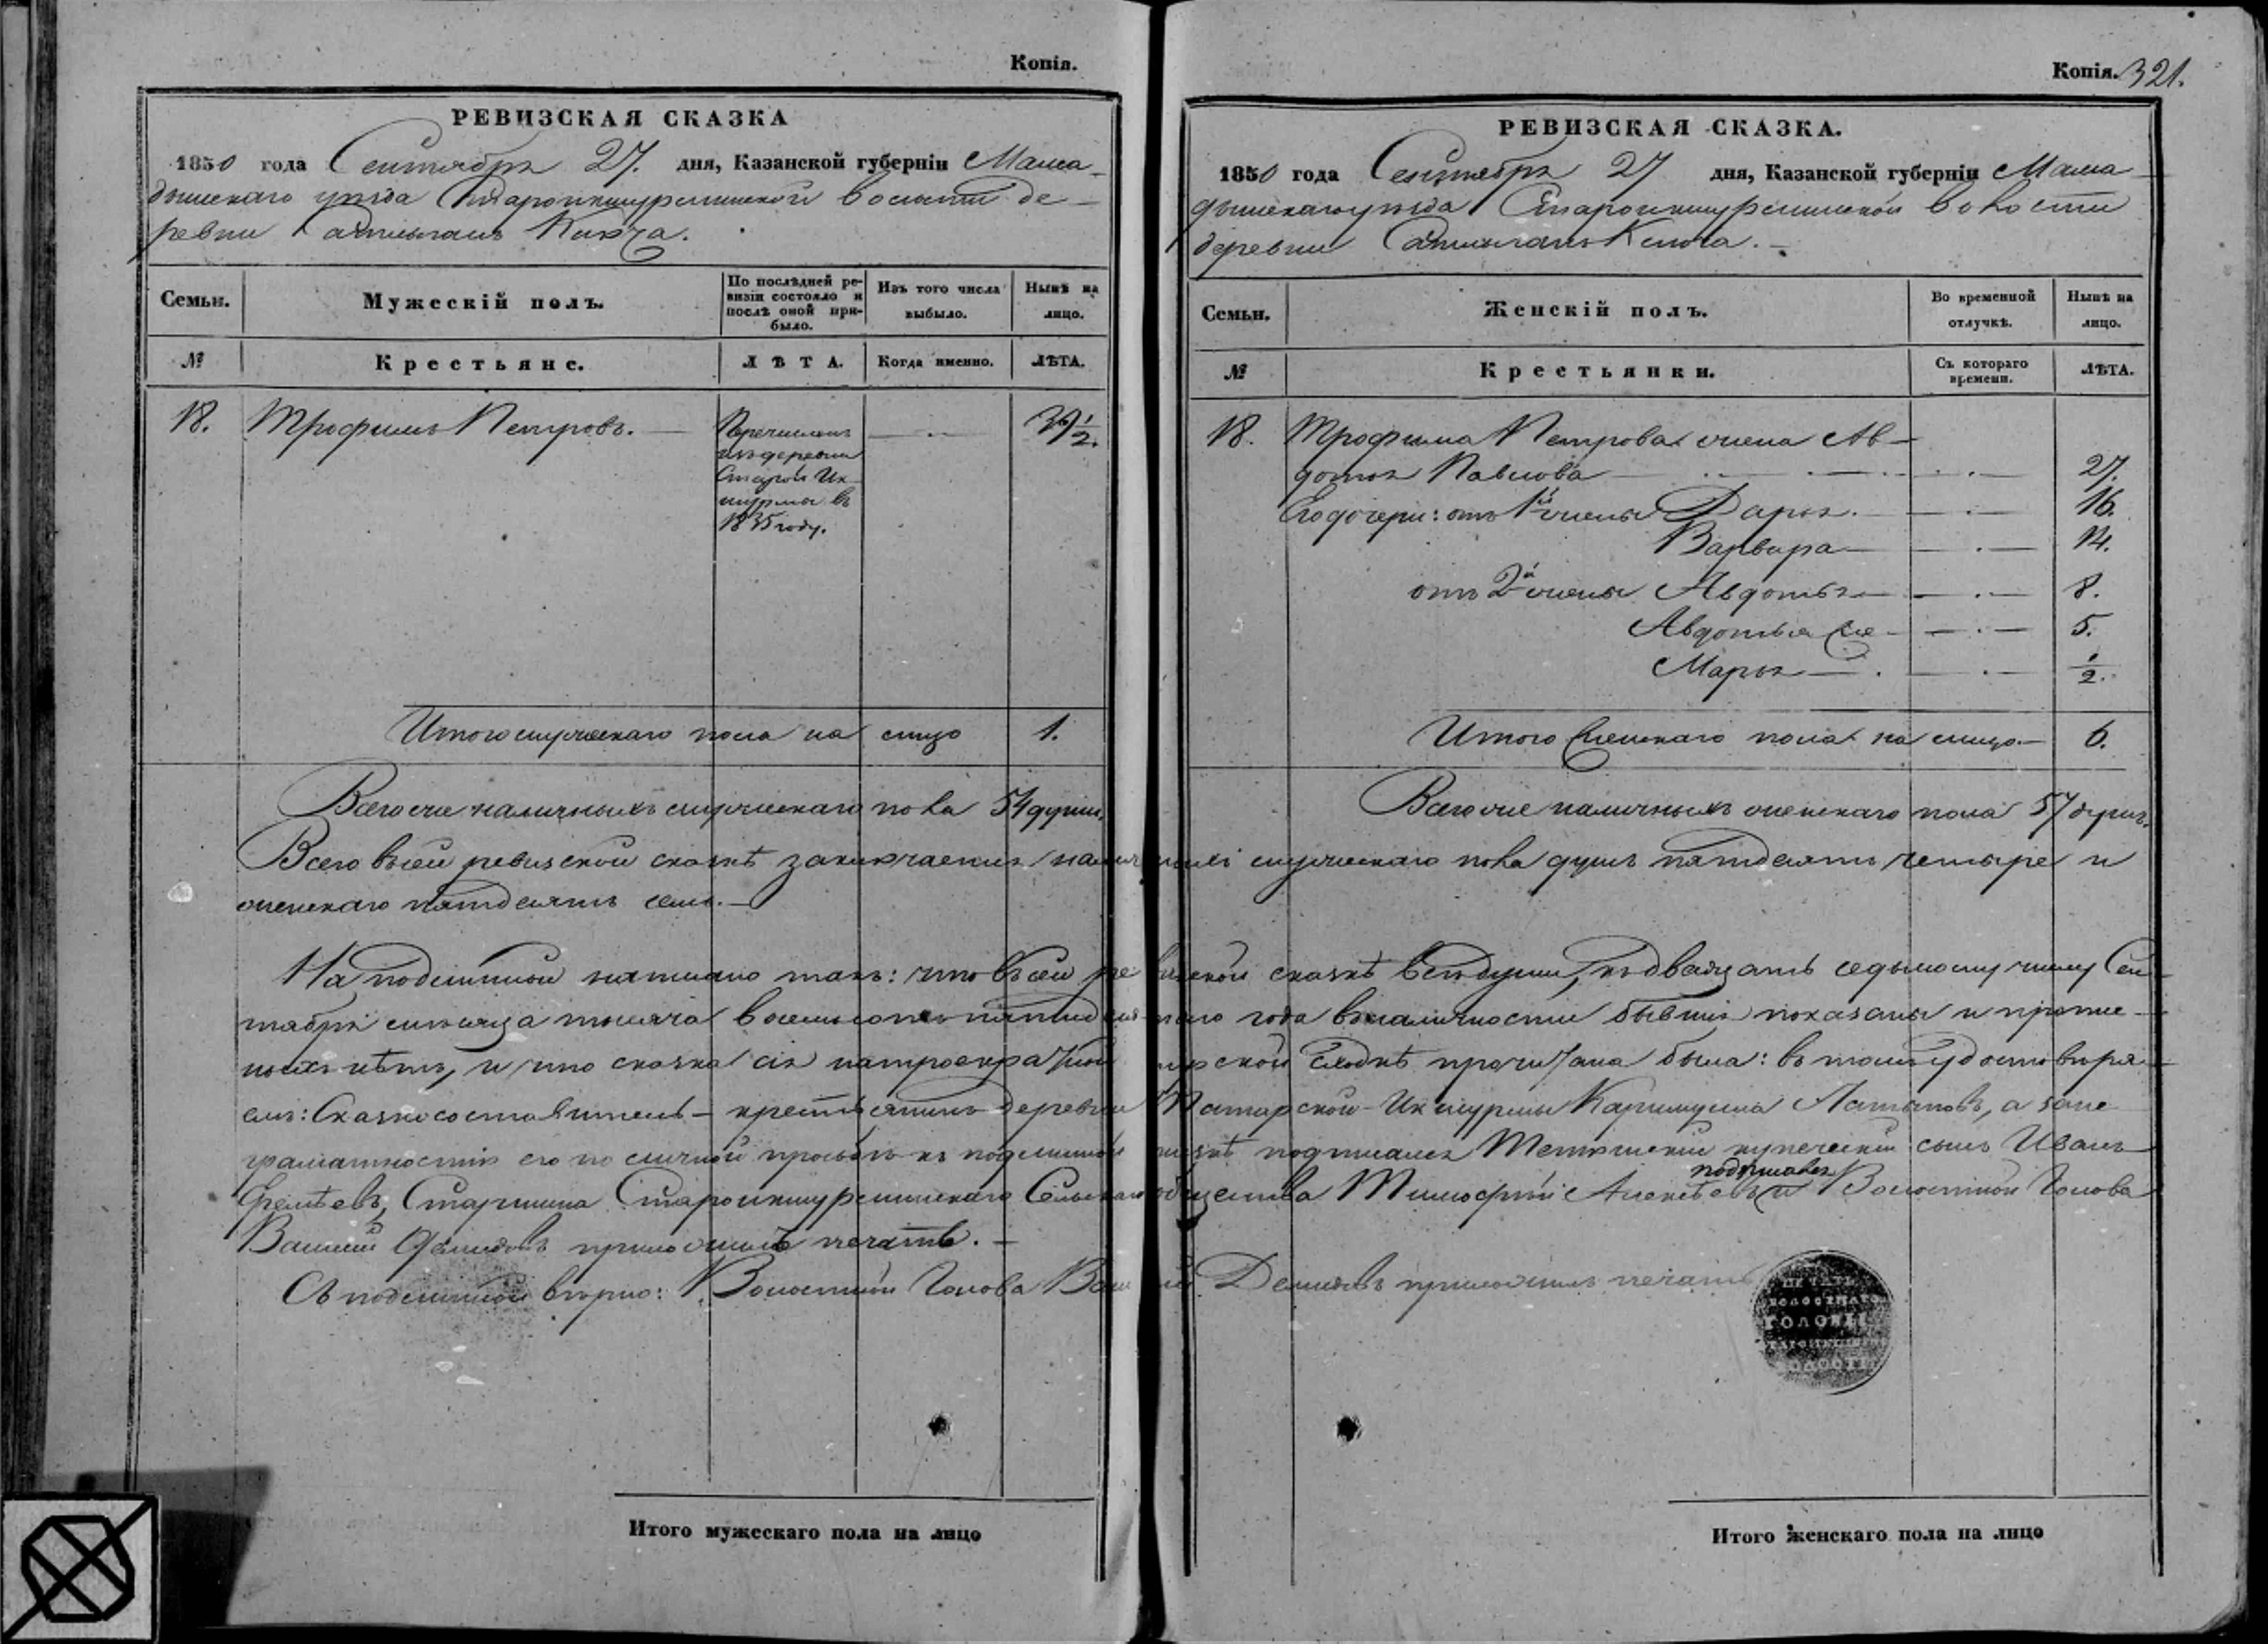 Копія.
РЕВИЗСКАЯ СКАЗКА
1850 года Сентября 27. дня, Казанской губерніи Мама-
дышскаго уѣзда Староикшурминской волости де-
ревни Ключа.
Семьи.
Мужескій полъ.
По послѣдней ре-
визіи состояло и
послѣ оной при-
было.
Изъ того числа
выбыло.
Нынѣ на
лицо.
№
Крестьяне.
ЛѢТА.
Когда именно.
ЛѢТА.
18. Трофимъ Петровъ.
Перечисленъ
изъ деревни
Старой Ик-
шурмы въ
1835 году.
Итого мужескаго пола на лицо 1.
Всего же наличныхъ мужескаго пола 54 души.
Копія. 321.
РЕВИЗСКАЯ СКАЗКА.
1850 года Сентября 27 дня, Казанской губерніи Мама-
дышскаго уѣзда Староикшурминской волости
деревни Ключа.
Семьи.
Женскій полъ.
Во временной
отлучкѣ.
Нынѣ на
лицо.
№
Крестьянки.
Съ котораго
времени.
ЛѢТА.
18. Трофима Петрова жена Ав-
дотья Павлова 27.
Его дочери: отъ 1й жены Дарья. 16.
Варвара 14.
отъ 2й жены Авдотья 8.
Авдотья же 5.
Марья 1/2.
Итого женскаго пола на лицо 6.
Всего же наличныхъ женскаго пола 57 душъ.
Всего въ сей ревизской сказкѣ заключается наличныхъ мужескаго пола душъ пятдесятъ четыре и
женскаго пятдесятъ семь.
На подлинной написано такъ: что въ сей ревизской сказкѣ всѣ души, къ двадцать седьмому числу Сен-
тября мѣсяца тысяча восемьсотъ пятидесятаго года въ наличности бывшія показаны и пропис-
ныхъ нѣтъ, и что сказка сія на троекратной мірской сходкѣ прочитана была: въ томъ удостовѣря-
емъ: Сказкосоставитель крестьянинъ деревни Татарской Икшурмы а за не
грамотностію его по личной прозьбѣ къ подлинной сказкѣ подписался Тетюшскій купеческій сынъ Иванъ
Старшина Староикшурминскаго Сельскаго общества Тимофей Алексѣевъ подписался и Волостной Голова
Василій Демидовъ приложилъ печать.
Съ подлинной вѣрно: Волостной Голова Василій Демидовъ приложилъ печать
ВОЛОСТНАГО
ГОЛОВЫ
ВОЛОСТИ
Итого мужескаго пола на лицо
Итого женскаго пола на лицо